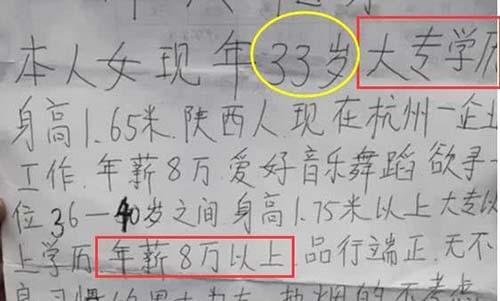 本人女现年33岁大专学历
身高1.65米.陕西人现在杭州一企业
工作.年薪8万.爱好音乐舞蹈欲寻一
位36—40岁之间.身高1.75米以上大专以
上学历.年薪8万以上.品行端正.无不